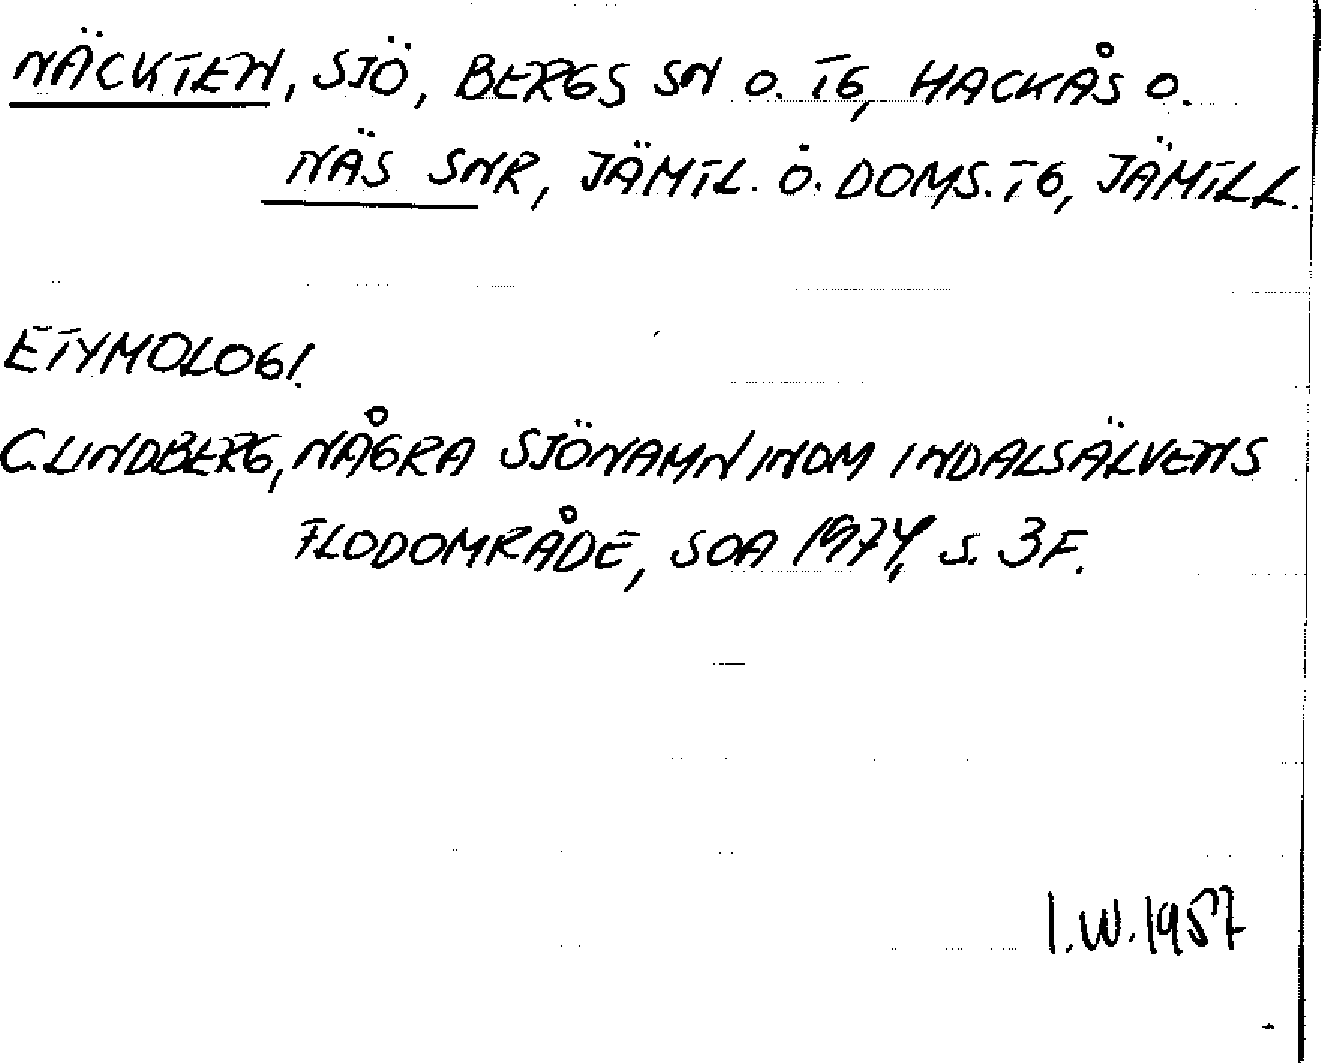 NÄCKTEN, SJÖ, BERGS SN O. TG, HACKÅS O.
NÄS SNR, JÄMTL. Ö. DOMS. TG, JÄMTLL.
ETYMOLOGI.
C. LINDBERG, NÅGRA SJÖNAMN INOM INDALSÄLVENS
FLODOMRÅDE, SOA 1974, S. 3 F.
I.W. 1957